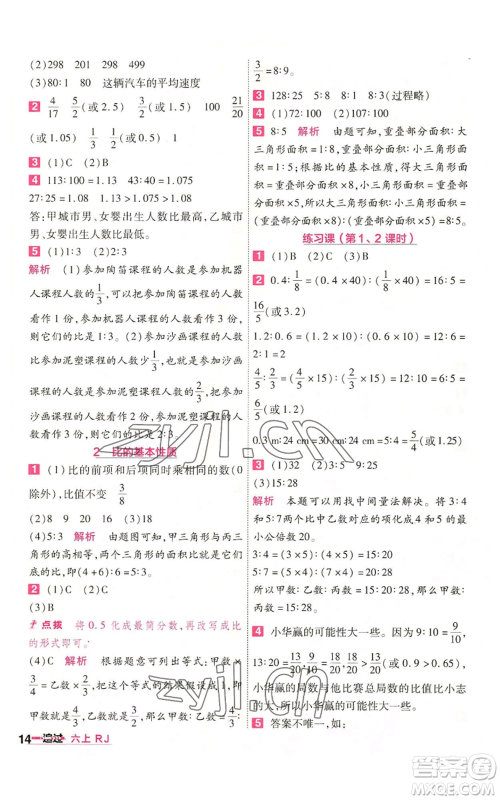 (2)298 201 498 300
(3)80:1 80 这辆汽车的平均速度
2 4/17 5/2(或2.5) 100 21/20
(或1.05) 1/3 1/2 6/5(或1.2)
3 (1)C (2)B
4 113:100=1.13 43:40=1.075
27:25=1.08 1.13>1.08>1.075
答:甲城市男、女婴出生人数比最高,乙城市
男、女婴出生人数比最低。
5 (1)1:3 (2)2:3
解析 (1)参加陶笛课程的人数是参加机器
人课程人数的1/3,可以把参加机器人课程的
人数看作3份,参加陶笛课程的人数看作1
份,则它们的比是1:3。(2)参加沙画课程的人
数比参加泥塑课程的人数少1/3,则参加沙画课
程的人数是参加泥塑课程人数的2/3,可以把参
加沙画课程的人数看作2份,参加泥塑课程的
人数看作3份,则它们的比是2:3。
2 比的基本性质
1 (1)比的前项和后项同时乘相同的数(0
除外),比值不变 3/8
(2)8 9 20 16
(3)5:3 解析 由题图可知,甲三角形与丙三
角形的高相等,两个三角形的面积比就是它们
底的比:(4+6):6=5:3。
2 (1)B (2)D
(3)B
点拨 将0.5化成最简分数,再改写成比
的形式即可。
(4)C 解析 根据题意可列出等式:甲数×
3/4=乙数×2/3,把等式的结果假设成1,则
甲数就是4/3,乙数就是3/2,甲数:乙数=4/3:
3/2=8:9。
3 128:25 5:8 8:1 8:3(过程略)
4 (1)72:100 (2)107:100
5 8:5 解析 由题可知,重叠部分面积:大
三角形面积=1:8,重叠部分面积:小三角形
面积=1:5。根据比的基本性质,大三角形面
积=重叠部分面积×8,小三角形面积=重叠
部分面积×5,大三角形面积:小三角形面积=
(重叠部分面积×8):(重叠部分面积×5)=8:5。
练习课(第1、2课时)
1 (1)B (2)B (3)C
2 0.4:1/8=(2/5×40):(1/8×40)=16:5=
16/5(或3.2)
1.2:0.6=(1.2×10):(0.6×10)=12:6=
2:1=2
4/5:2/3=(4/5×15):(2/3×15)=12:10=6:5=
6/5(或1.2)
0.3 m:24 cm=30 cm:24 cm=30:24=5:4=5/4
3 (1)32 (2)12 13:25
(3)15:28
解析 本题可以用找中间量法解决。将3:4
和5:7中代表乙数的项化成4和5的最
小公倍数。
3:4=(3×5):(4×5)=15:20
5:7=(5×4):(7×4)=20:28,所以甲数:
丙数=15:28。
4 小华赢的可能性大一些。因为9:10=9/10,
13:20=13/20,9/10=18/20,18/20>13/20,所以
小华赢的局数与他比赛总局数的比值比小志
的大,小华赢的可能性大一些。
5 答案不唯一,如:
14 一遍过 六上 RJ
zyjl.cn
答案圈
MXQE.COM